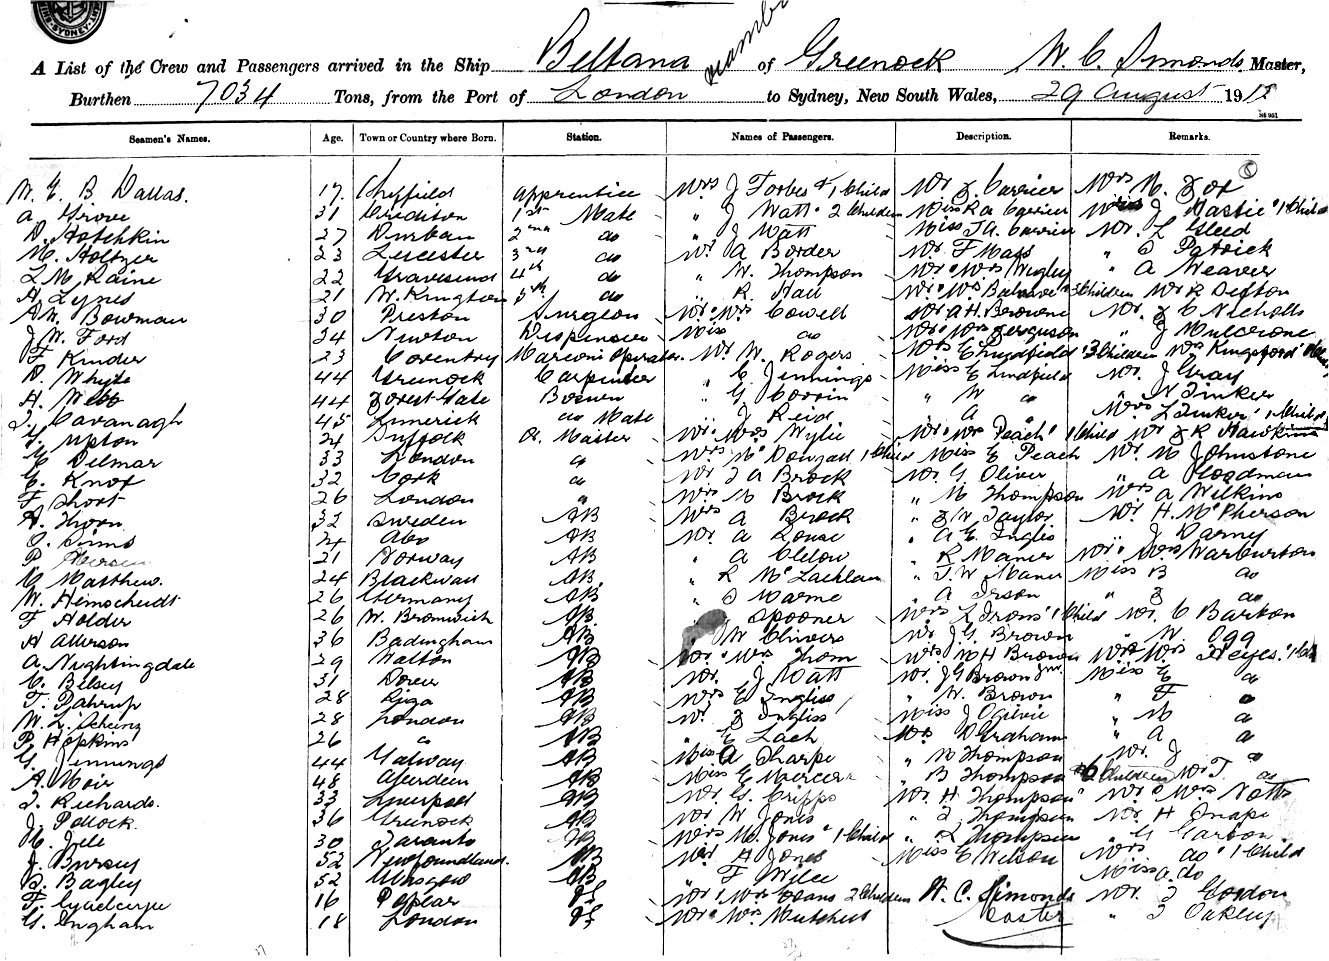 SYDNEY
A List of the Crew and Passengers arrived in the Ship Beltana of Greenock W. C. Symonds, Master,
Burthen 7034 Tons, from the Port of London to Sydney, New South Wales, 29 August 191
Seamen's Names. Age. Town or Country where Born. Station. Names of Passengers. Description. Remarks.
W. E. B. Dallas. 17. Sheffield apprentice Mrs J Forbes & 1 Child Mr J. Carrier Mrs M. Fox
A Grove 31 Crediton 1st Mate " J Watt " 2 Children Miss R a Carrier J Hastie " 1 Child
D. Hotchkin 27 Durban 2nd do " J Watt Miss J A. Carrier Mr. L Gleed
M. Holtzer 23 Leicester 3rd do Mr. A Border Mr. F Mass " D Patrick
L. M. Raine 22 Gravesend 4th do " W. Thompson Mr " Mrs Wrigley " A Weaver
A. Lynes 21 W. Kington 5th do " R. Hall Mr " Mrs " 3 Children Mr R Deeton
A. W. Bowman 30 Preston Surgeon Mr " Mrs Cowell Mr A H. Browne Mr. J C Nicholls
J. W. Ford 34 Newton Dispenser Miss do Mr " Mrs Ferguson " J Mulcrone
F Kinder 23 Coventry Marconi Operator. Mr W. Rogers Mrs E Lindfield " 3 Children Mrs Kingsford
D. Whyte 44 Greenock Carpenter " C. Jennings Miss E Lindfield Mr. J Gray
A. Webb 44 Forest Gate Bosun " G Corrin " W do " N Tinker
J. Cavanagh 45 Limerick do Mate " J Reid " A " Mrs L Tinker " 1 Child
G. Upton 24 Suffolk Q. Master Mr " Mrs Wylie Mr " Mrs Peach " 1 Child Mr J R Hawkins
C Delmar 33 London do Mrs McDougall 1 Child Miss E Peach Mr. M Johnstone
C. Knox 32 Cork do Mr J A Brock Mr. G. Oliver " A Hoodman
F Short 26 London " Mrs M Brock " M Thompson Mrs A Wilkins
A. Thorn 32 Sweden AB Mrs A Brock " J W Taylor Mr H. McPherson
O. Sirms 24 Abo AB Mr. A Louse " A E Inglis " J Darny
P 21 Norway AB " A Clelow " R Maner Mr " Mrs Warburton
C Matthew. 24 Blackwall AB. " R McLachlan " J. W Maner Miss B do
W. Hemscheidt 26 Germany AB " D Warne " A Irson " J do
F Holder 26 W. Bromwich AB. Spooner Mrs L Irons " 1 Child Mr. C Barton
A Allerson 36 Badingham AB " W Chivers Mr. J. G. Brown " W. Ogg
A. Nightingale 29 Walton AB Mr. " Mrs Thom Mrs W H Brown Mr " Mrs Heyes. " 1 Child
C. Belsey 31 Dover AB Mr. J Watt Mr. J G Brown Jnr. Miss E do
F. Dahrup 28 Riga AB Mrs E Ingliss " W. Brown " F do
W. L. 28 London AB Mr J Ingliss Miss J Ogilvie " M do
P Hopkins 26 do AB " E Lach Mr. D Graham " A do
G. Jennings 44 Galway AB Miss A Tharpe " W Thompson Mr. J do
A. Moir 48 Aberdeen AB Miss E Mercer " B Thompson " 6 Children Mr T. do
J. Richards. 33 Liverpool AB Mr. G. Cripps Mr. H Thompson Mr " Mrs Notts
J. Pollock. 36 Greenock AB Mr W. Jones " J Thompson Mr H Snape
M. Jele 30 Taranto AB Mrs M. Jones " 1 Child " L Thompson " G Garbon
J. Bursey 52 Newfoundland. AB Mr H Jones Miss E Wilson Mrs do " 1 Child
D. Bagley 52 Glasgow AB " F Wilce Miss A. do
F. 16 Poplar Mr " Mrs Evans 2 Children W. C. Symonds Mr. J Gordon
G. Ingham 18 London Mr " Mrs Mutchus Master " J Oakley